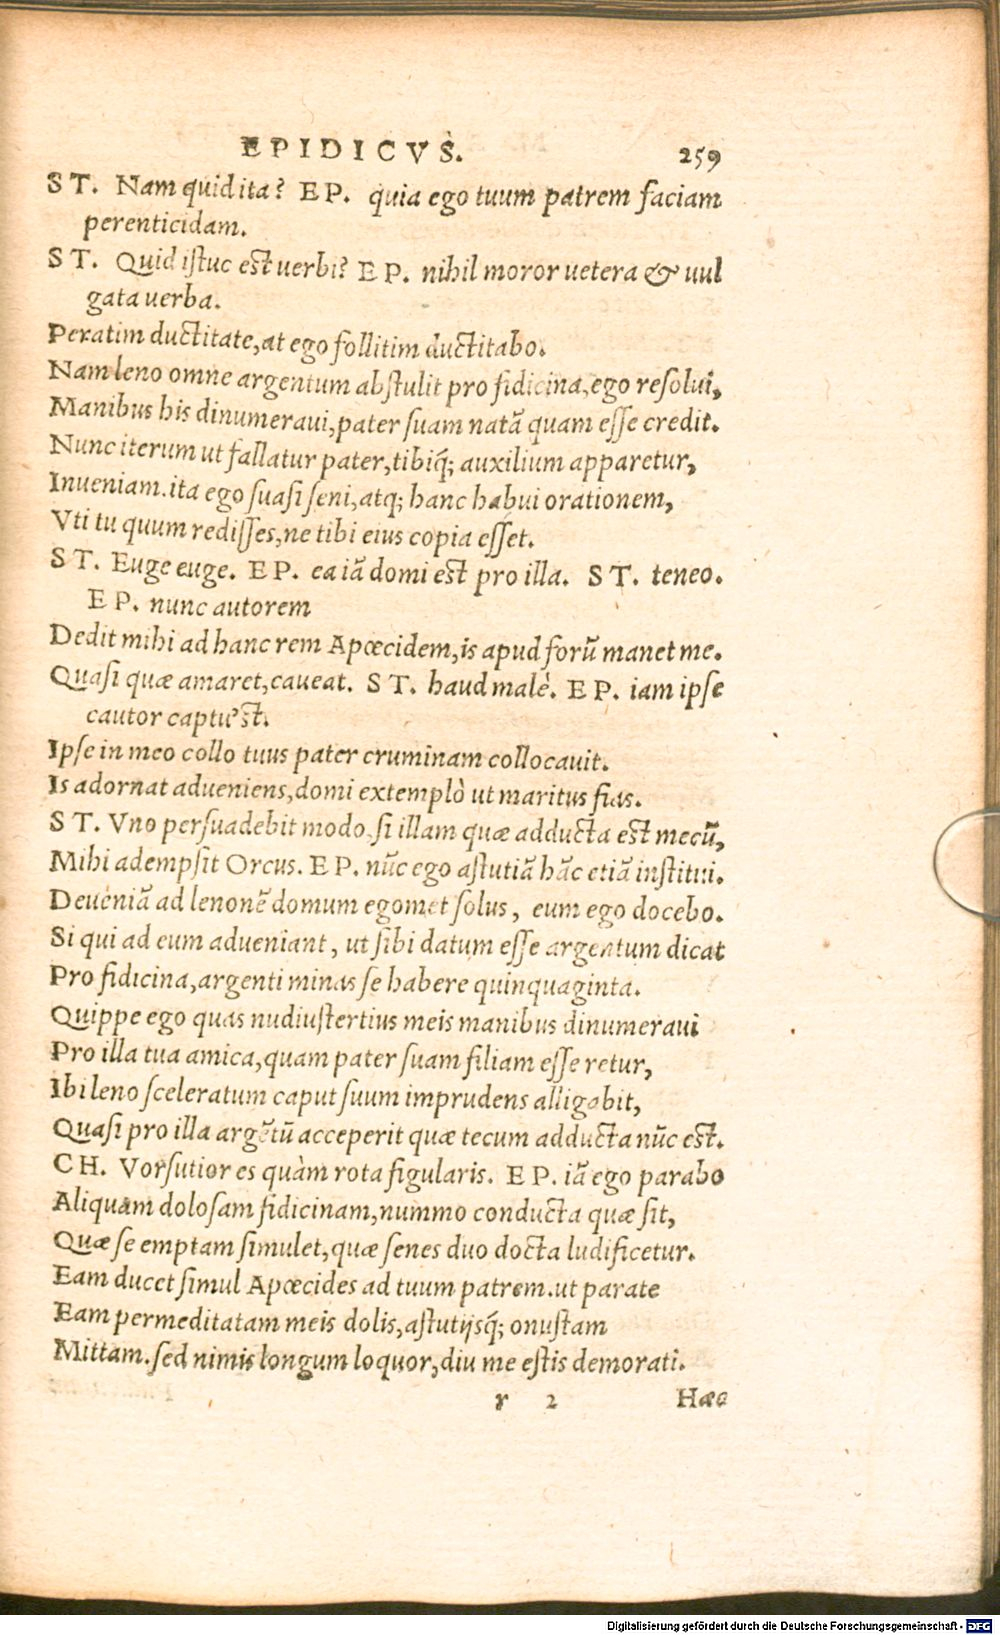 EPIDICVS. 259
ST. Nam quid ita? EP. quia ego tuum patrem faciam
perenticidam.
ST. Quid istuc est uerbi? EP. nihil moror uetera & uul
gata uerba.
Peratim ductitate, at ego follitim ductitabo.
Nam leno omne argentum abstulit pro fidicina, ego resolui,
Manibus his dinumeraui, pater suam natã quam esse credit.
Nunc iterum ut fallatur pater, tibiq́; auxilium apparetur,
Inueniam. ita ego suasi seni, atq; hanc habui orationem,
Vti tu quum redisses, ne tibi eius copia esset.
ST. Euge euge. EP. ea iã domi est pro illa. ST. teneo.
EP. nunc autorem
Dedit mihi ad hanc rem Apœcidem, is apud forũ manet me.
Quasi quæ amaret, caueat. ST. haud malè. EP. iam ipse
cautor captu'st.
Ipse in meo collo tuus pater cruminam collocauit.
Is adornat adueniens, domi extemplò ut maritus fias.
ST. Vno persuadebit modo, si illam quæ adducta est mecũ,
Mihi adempsit Orcus. EP. nũc ego astutiã hãc etiã institui.
Deueniã ad lenonẽ domum egomet solus, eum ego docebo.
Si qui ad eum adueniant, ut sibi datum esse argentum dicat
Pro fidicina, argenti minas se habere quinquaginta.
Quippe ego quas nudiustertius meis manibus dinumeraui
Pro illa tua amica, quam pater suam filiam esse retur,
Ibi leno sceleratum caput suum imprudens alligabit,
Quasi pro illa argẽtũ acceperit quæ tecum adducta nũc est.
CH. Vorsutior es quàm rota figularis. EP. iã ego parabo
Aliquam dolosam fidicinam, nummo conducta quæ sit,
Quæ se emptam simulet, quæ senes duo docta ludificetur.
Eam ducet simul Apœcides ad tuum patrem. ut parate
Eam permeditatam meis dolis, astutijsq́; onustam
Mittam. sed nimis longum loquor, diu me estis demorati.
r 2 Hæc
Digitalisierung gefördert durch die Deutsche Forschungsgemeinschaft - DFG